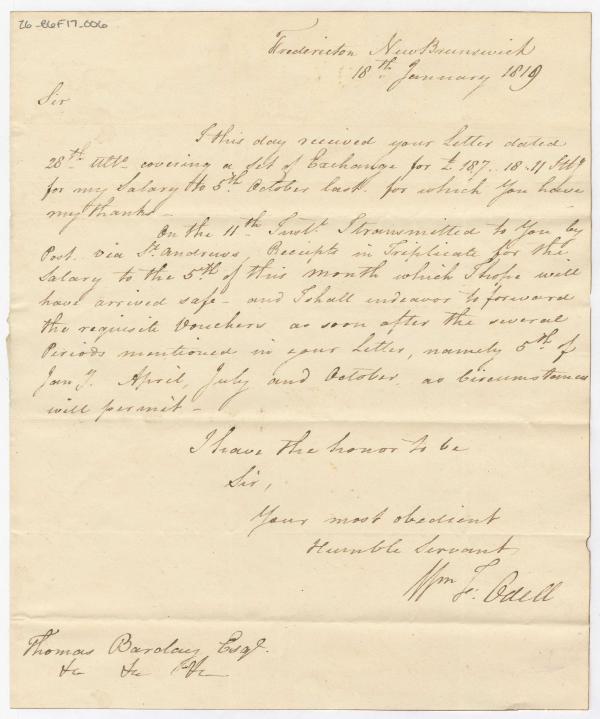 26-B6F17-006
Fredericton New Brunswick
18th January 1819
Sir
I this day received your Letter dated
28th Ulto. covering a Set of Exchange for £187..18.11 Stg
for my Salary to 5th October last. for which You have
my thanks—
On the 11th Inst. I transmitted to You by
Post. via St. Andrews, Receipts in Triplicate for the
Salary to the 5th of this month which I hope will
have arrived safe— and I shall endeavor to forward
the requisite Vouchers as soon after the several
Periods mentioned in your Letter, namely 5th of
Jany. April, July and October, as Circumstances
will permit—
I have the honor to be
Sir,
Your most obedient
Humble Servant
Wm F: Odell
Thomas Barclay Esqr.
&c &c &c